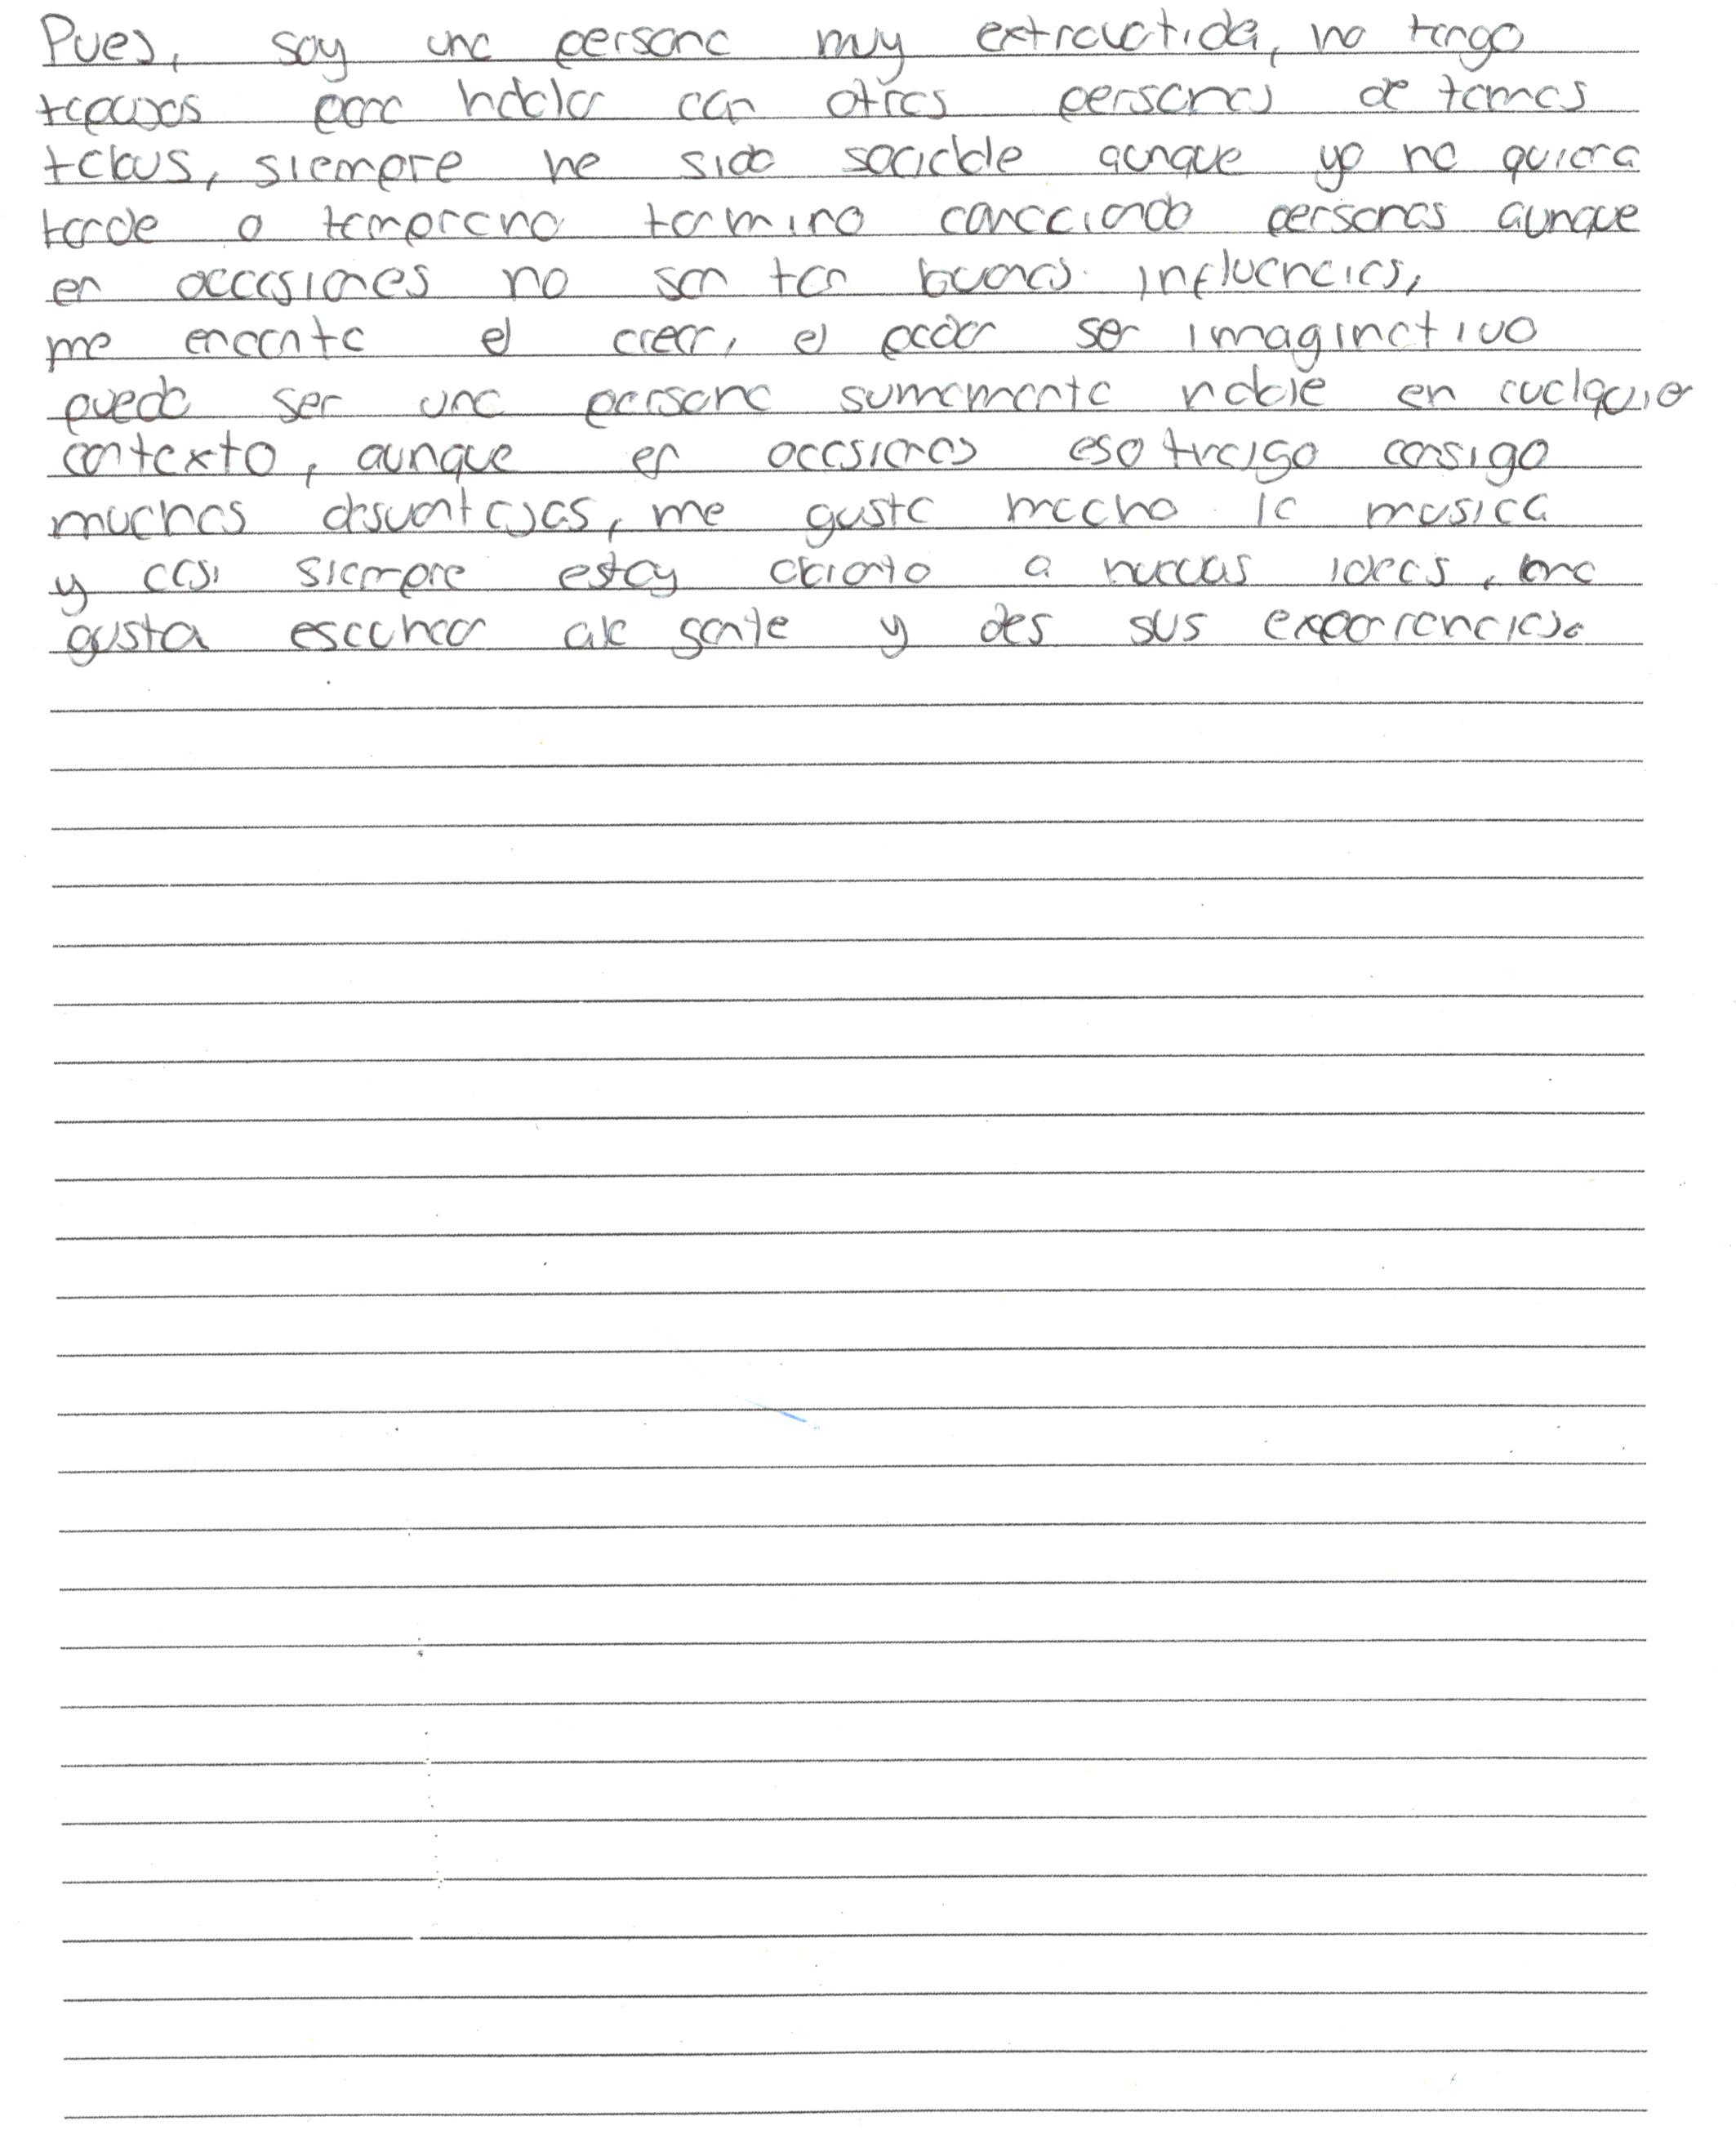 Pues, soy una persona muy extrovertida, no tengo
para hablar con otras personas de temas
tabus, siempre he sido sociable aunque yo no quiera
tarde o temprano termino conociendo personas aunque
en occasiones no son tan buenas influencias,
me encanta el crear, el poder ser imaginativo
puedo ser una persona sumamente noble en cualquier
contexto, aunque en occsiones eso traigo consigo
muchas desventajas, me gusta mucho la musica
y casi siempre estoy abierto a nuevas ideas, me
gusta escuchar ala gente y des sus experiencias.